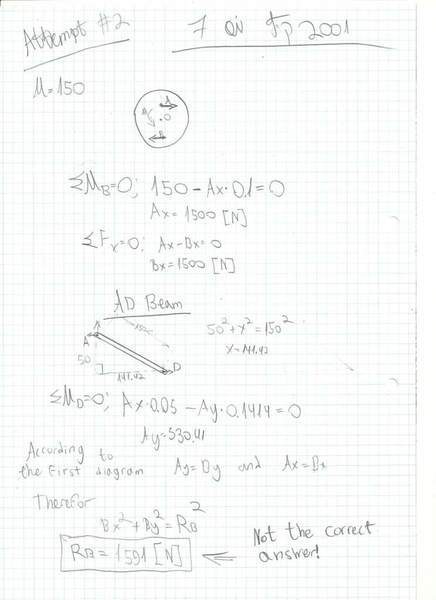 Attempt #2
7 2001
M=150
A
O
B
ΣM_B=0; 150 - Ax·0.1=0
Ax=1500 [N]
ΣFx=0; Ax-Bx=0
Bx=1500 [N]
AD Beam
150
50²+x²=150²
x=141.42
A
50
141.42
D
ΣM_D=0; Ax·0.05 - Ay·0.1414=0
Ay=530.41
According to
the First diagram Ay=By and Ax=Bx
Therefor
Bx²+By²=R_B²
R_B=1591 [N]
Not the correct
answer!